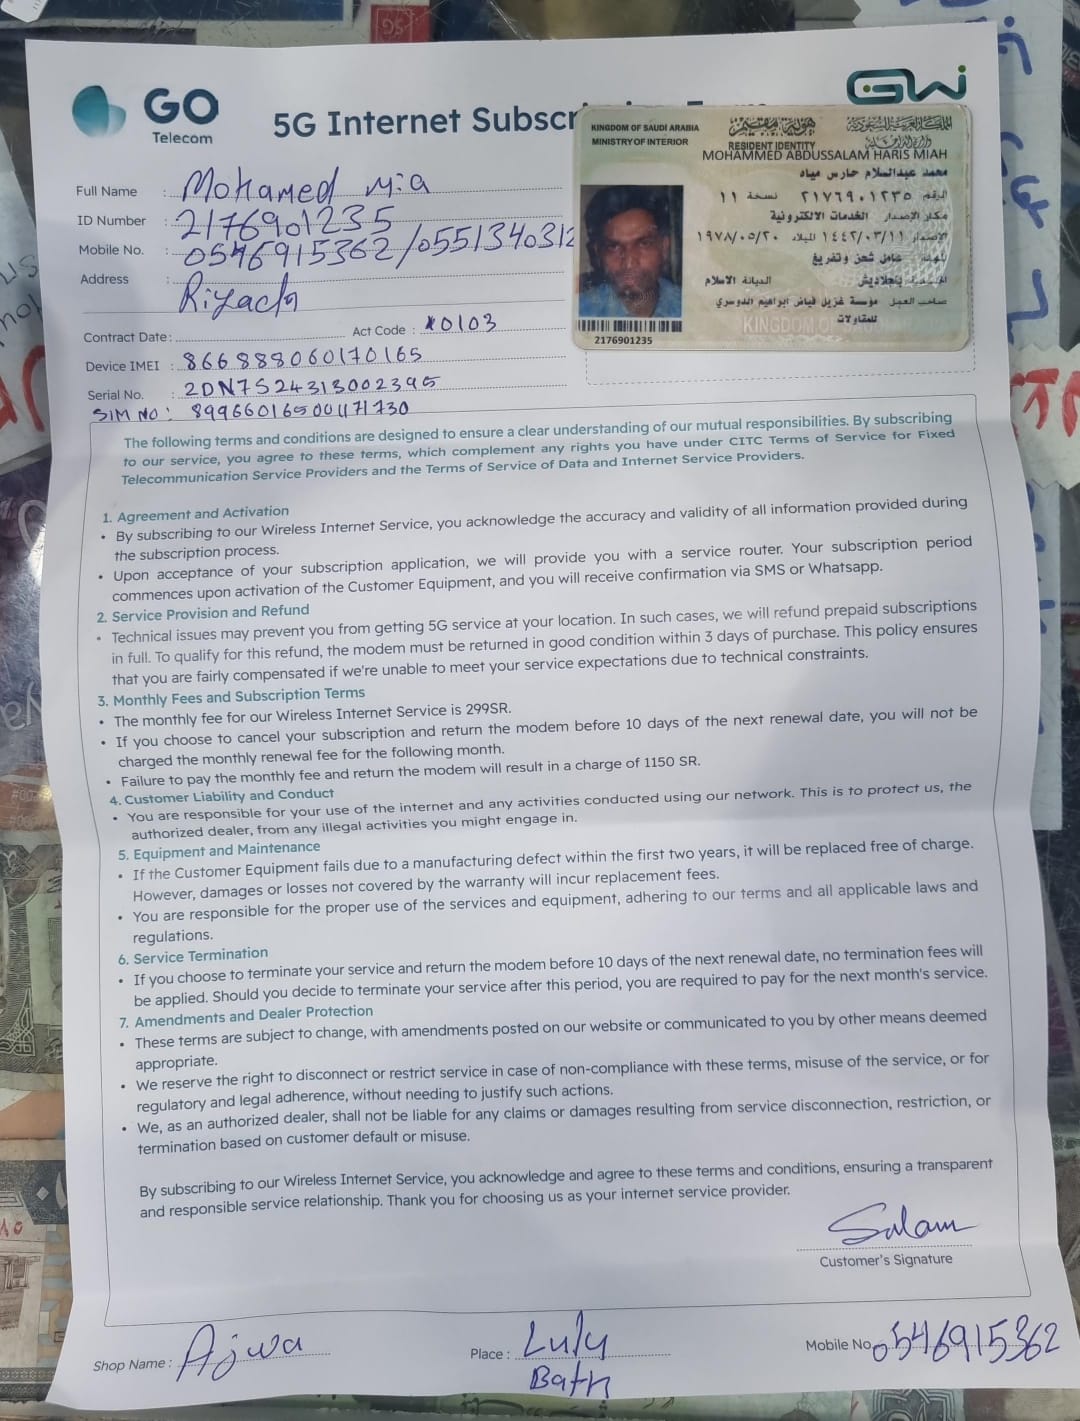 GO
Telecom
GWi
5G Internet Subscr
Full Name : Mohamed Mia
ID Number : 2176901235
Mobile No. : 0546915362/055134031২
Address : Riyadh
Contract Date :
Act Code : *0103
Device IMEI : 866888060170165
Serial No. : 2DN7S24313002395
SIM NO : 899660165001171730
KINGDOM OF SAUDI ARABIA
MINISTRY OF INTERIOR
المملكة العربية السعودية
وزارة الداخلية
هوية مقيم
RESIDENT IDENTITY
MOHAMMED ABDUSSALAM HARIS MIAH
محمد عبدالسلام حارس مياه
الرقم ٢١٧٦٩٠١٢٣٥ نسخة ١١
مكان الإصدار الخدمات الالكترونية
الإصدار ١٤٤٢/٠٣/١١ الميلاد ١٩٧٨/٠٥/٢٠
المهنة عامل شحن وتفريغ
بنجلاديش الديانة الاسلام
صاحب العمل مؤسسة غزيل فياض ابراهيم الدوسري
للمقاولات
KINGDOM OF
2176901235
The following terms and conditions are designed to ensure a clear understanding of our mutual responsibilities. By subscribing
to our service, you agree to these terms, which complement any rights you have under CITC Terms of Service for Fixed
Telecommunication Service Providers and the Terms of Service of Data and Internet Service Providers.
1. Agreement and Activation
• By subscribing to our Wireless Internet Service, you acknowledge the accuracy and validity of all information provided during
the subscription process.
• Upon acceptance of your subscription application, we will provide you with a service router. Your subscription period
commences upon activation of the Customer Equipment, and you will receive confirmation via SMS or Whatsapp.
2. Service Provision and Refund
• Technical issues may prevent you from getting 5G service at your location. In such cases, we will refund prepaid subscriptions
in full. To qualify for this refund, the modem must be returned in good condition within 3 days of purchase. This policy ensures
that you are fairly compensated if we're unable to meet your service expectations due to technical constraints.
3. Monthly Fees and Subscription Terms
• The monthly fee for our Wireless Internet Service is 299SR.
• If you choose to cancel your subscription and return the modem before 10 days of the next renewal date, you will not be
charged the monthly renewal fee for the following month.
• Failure to pay the monthly fee and return the modem will result in a charge of 1150 SR.
4. Customer Liability and Conduct
• You are responsible for your use of the internet and any activities conducted using our network. This is to protect us, the
authorized dealer, from any illegal activities you might engage in.
5. Equipment and Maintenance
• If the Customer Equipment fails due to a manufacturing defect within the first two years, it will be replaced free of charge.
However, damages or losses not covered by the warranty will incur replacement fees.
• You are responsible for the proper use of the services and equipment, adhering to our terms and all applicable laws and
regulations.
6. Service Termination
• If you choose to terminate your service and return the modem before 10 days of the next renewal date, no termination fees will
be applied. Should you decide to terminate your service after this period, you are required to pay for the next month's service.
7. Amendments and Dealer Protection
• These terms are subject to change, with amendments posted on our website or communicated to you by other means deemed
appropriate.
• We reserve the right to disconnect or restrict service in case of non-compliance with these terms, misuse of the service, or for
regulatory and legal adherence, without needing to justify such actions.
• We, as an authorized dealer, shall not be liable for any claims or damages resulting from service disconnection, restriction, or
termination based on customer default or misuse.
By subscribing to our Wireless Internet Service, you acknowledge and agree to these terms and conditions, ensuring a transparent
and responsible service relationship. Thank you for choosing us as your internet service provider.
Salam
Customer's Signature
Shop Name : Ajwa
Place : Luly
Bath
Mobile No 0546915362